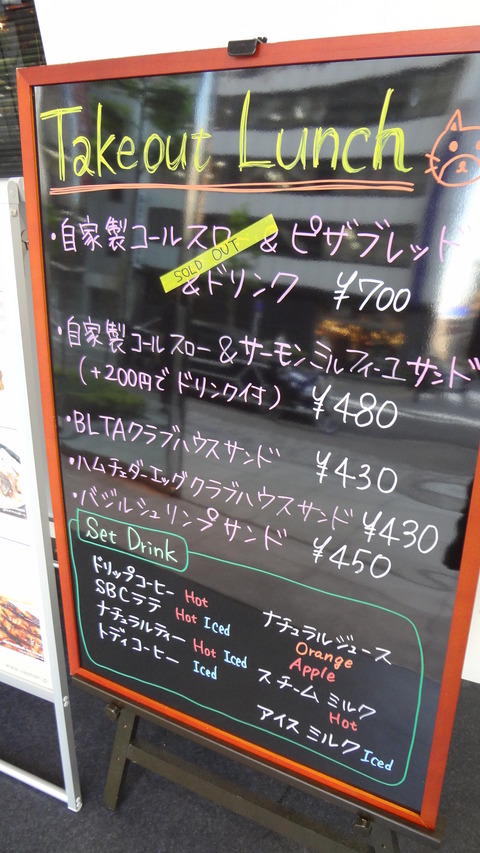 Takeout Lunch
・自家製コールスロー&ピザブレッド
SOLD OUT
&ドリンク ¥700
・自家製コールスロー&サーモンミルフィーユサンド
(+200円でドリンク付) ¥480
・BLTAクラブハウスサンド ¥430
・ハムチェダーエッグクラブハウスサンド ¥430
・バジルシュリンプサンド ¥450
Set Drink
ドリップコーヒー Hot
SBCラテ Hot Iced
ナチュラルティー Hot Iced
トディコーヒー Iced
ナチュラルジュース
Orange
Apple
スチームミルク
Hot
アイスミルク Iced